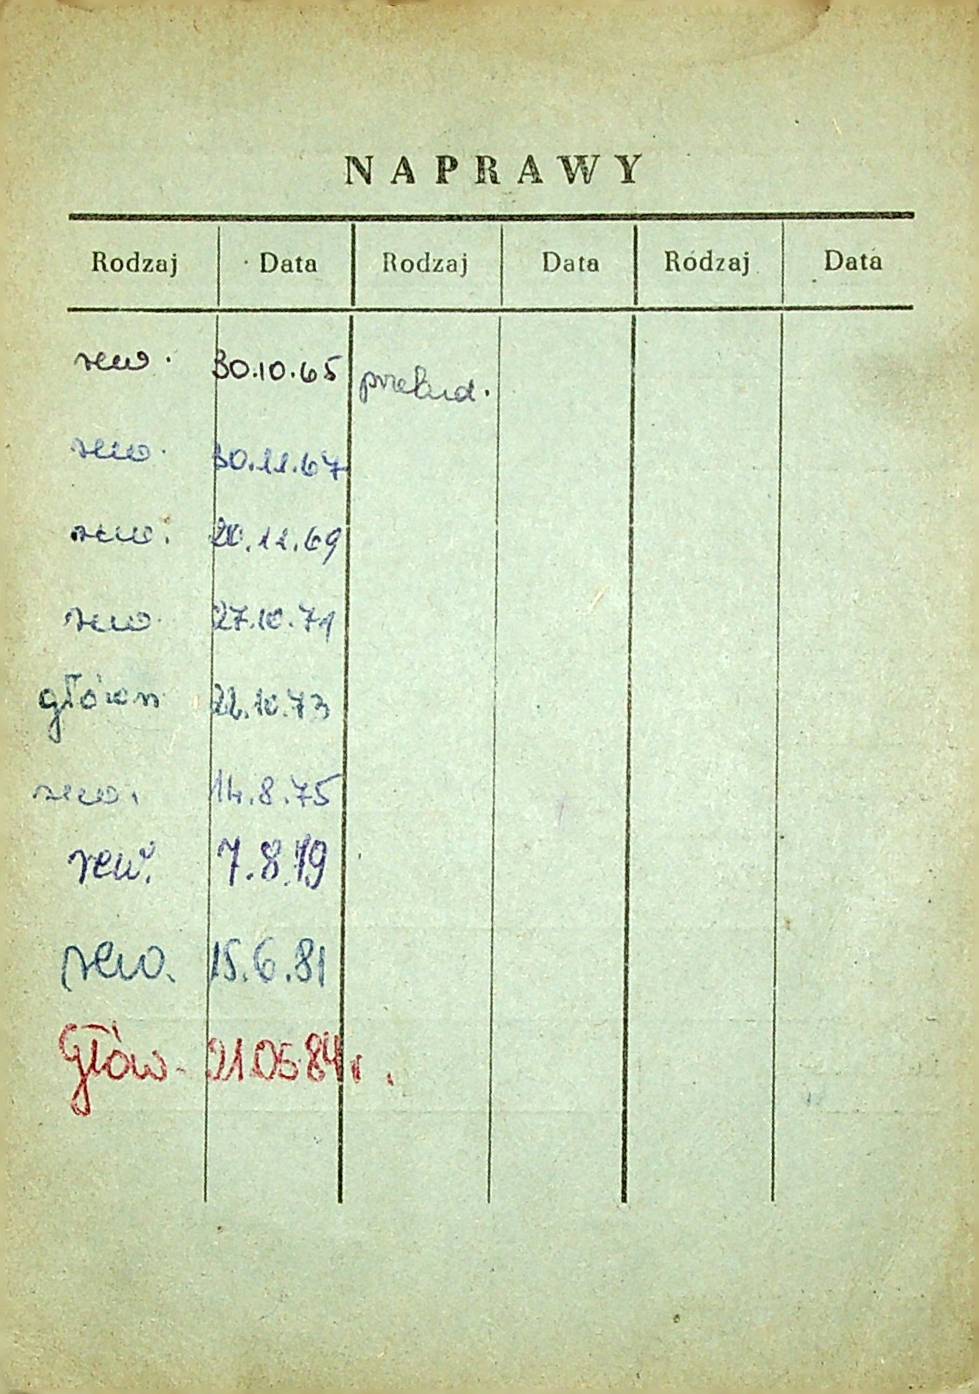 NAPRAWY
Rodzaj Data Rodzaj Data Rodzaj Data
rew. 30.10.65 przebud.
rew. 30.11.67
rew. 20.11.69
rew. 27.10.71
główn 22.10.73
rew. 14.8.75
rew. 7.8.79
rew. 15.6.81
Głów. 21.05.84r.